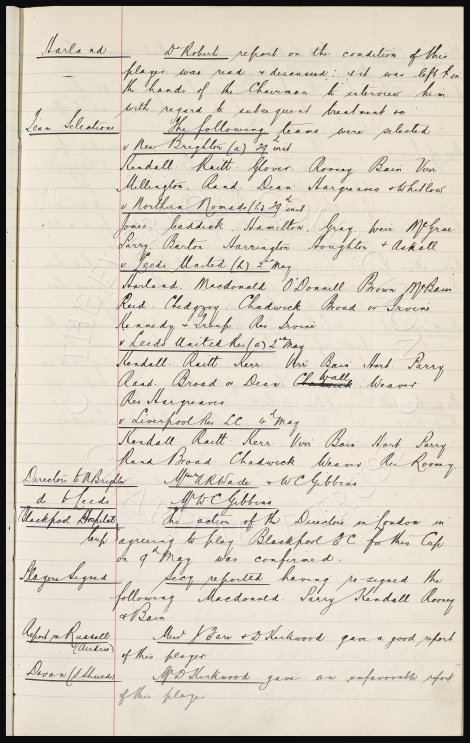 Harland Dr Robert report on the condition of this
player was read & discussed; & it was left in
the hands of the Chairman to interview him
with regard to subsequent treatment &c
Team Selections The following teams were selected
v New Brighton (a) 29th inst
Kendall Raitt Glover Rooney Bain Virr
Millington Rand Dean Hargreaves & Whitlow
v Northern Nomads (h) 29th inst
Jones Caddick Hamilton Gray Weir McGrae
Parry Barton Harrington Houghton &
v Leeds United (h) 2nd May
Harland Macdonald O'Donnell Brown McBain
Reid Chedgzoy Chadwick Broad or Irvine
Kennedy & Troup Res Irvine
v Leeds United Res (a) 2nd May
Kendall Raitt Kerr Virr Bain Hart Parry
Rand Broad or Dean Wall Weaver
Res Hargreaves
v Liverpool Res LC 4th May
Kendall Raitt Kerr Virr Bain Hart Parry
Rand Broad Chadwick Weaver Res Rooney
Director to N Brighton Messrs Wade & W C Gibbins
do to Leeds Mr W C Gibbins
Blackpool Hospital The action of the Directors in London in
Cup agreeing to play Blackpool F.C for this Cup
on 9th May was confirmed
Players Signed Secy reported having re-signed the
following Macdonald Parry Kendall Rooney
& Bain
Report re Russell Messrs J Bare & D Kirkwood gave a good report
(Airdrie) of this player
Devan (St Mirren) Mr D Kirkwood gave an unfavorable report
of this player